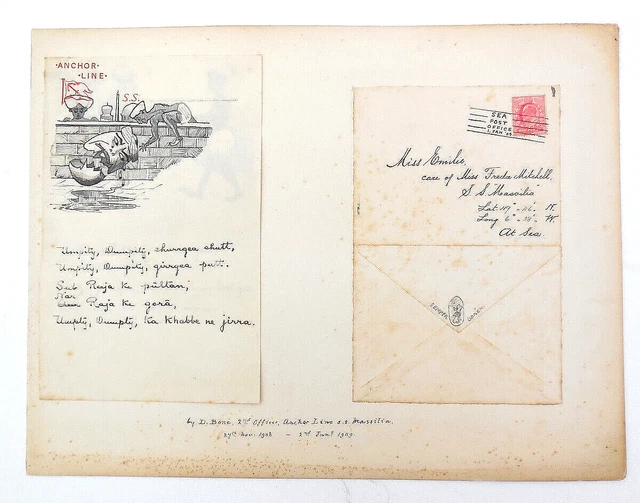 ANCHOR·
·LINE·
S.S.
Umpity, Dumpity, churrgea chutt,
Umpity, Dumpity, girrgea putt.
Sub Raja ke pultan,
Sub Raja ke gorā,
Umpty, Dumpty, Ka Khabbe ne jirra.
SEA
POST
OFFICE
Miss Emilie,
care of Miss Freda Mitchell,
S. S. Massilia
Lat N.
Long 6° W.
At Sea.
by D. Bone, 2nd Officer, Anchor Line s.s. Massilia.
27th Nov. 1908 – 2nd Jany 1909.